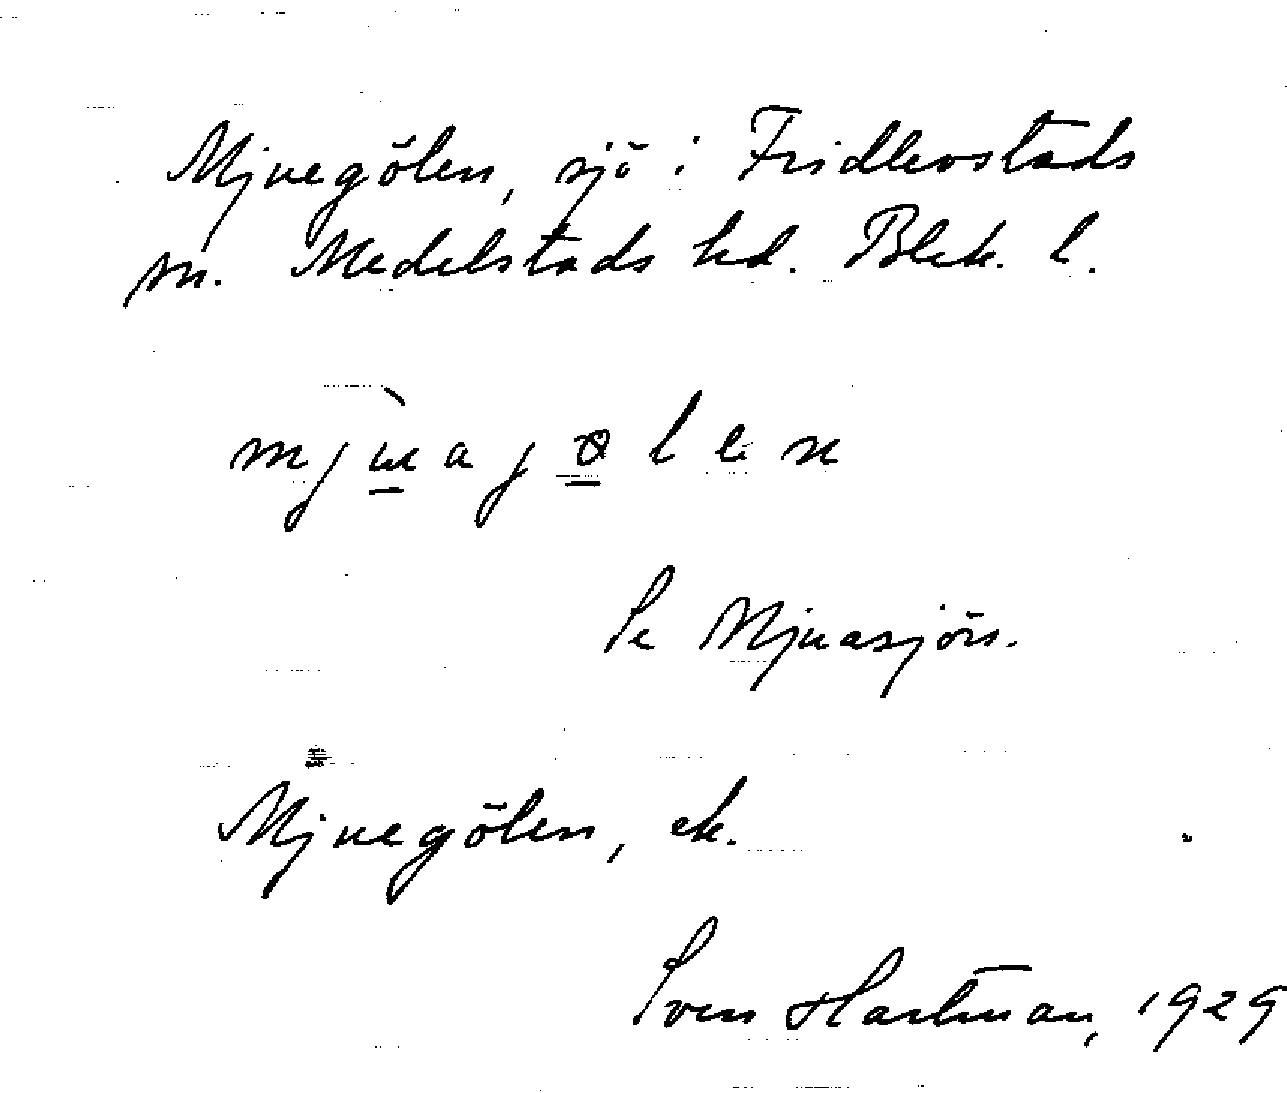 Mjuegölen, sjö i Fridlevstads
sn. Medelstads hd. Blek. l.
mjɯ̀agɵlen
Se Mjuasjön.
Mjuegölen, ek.
Sven Hartman, 1929